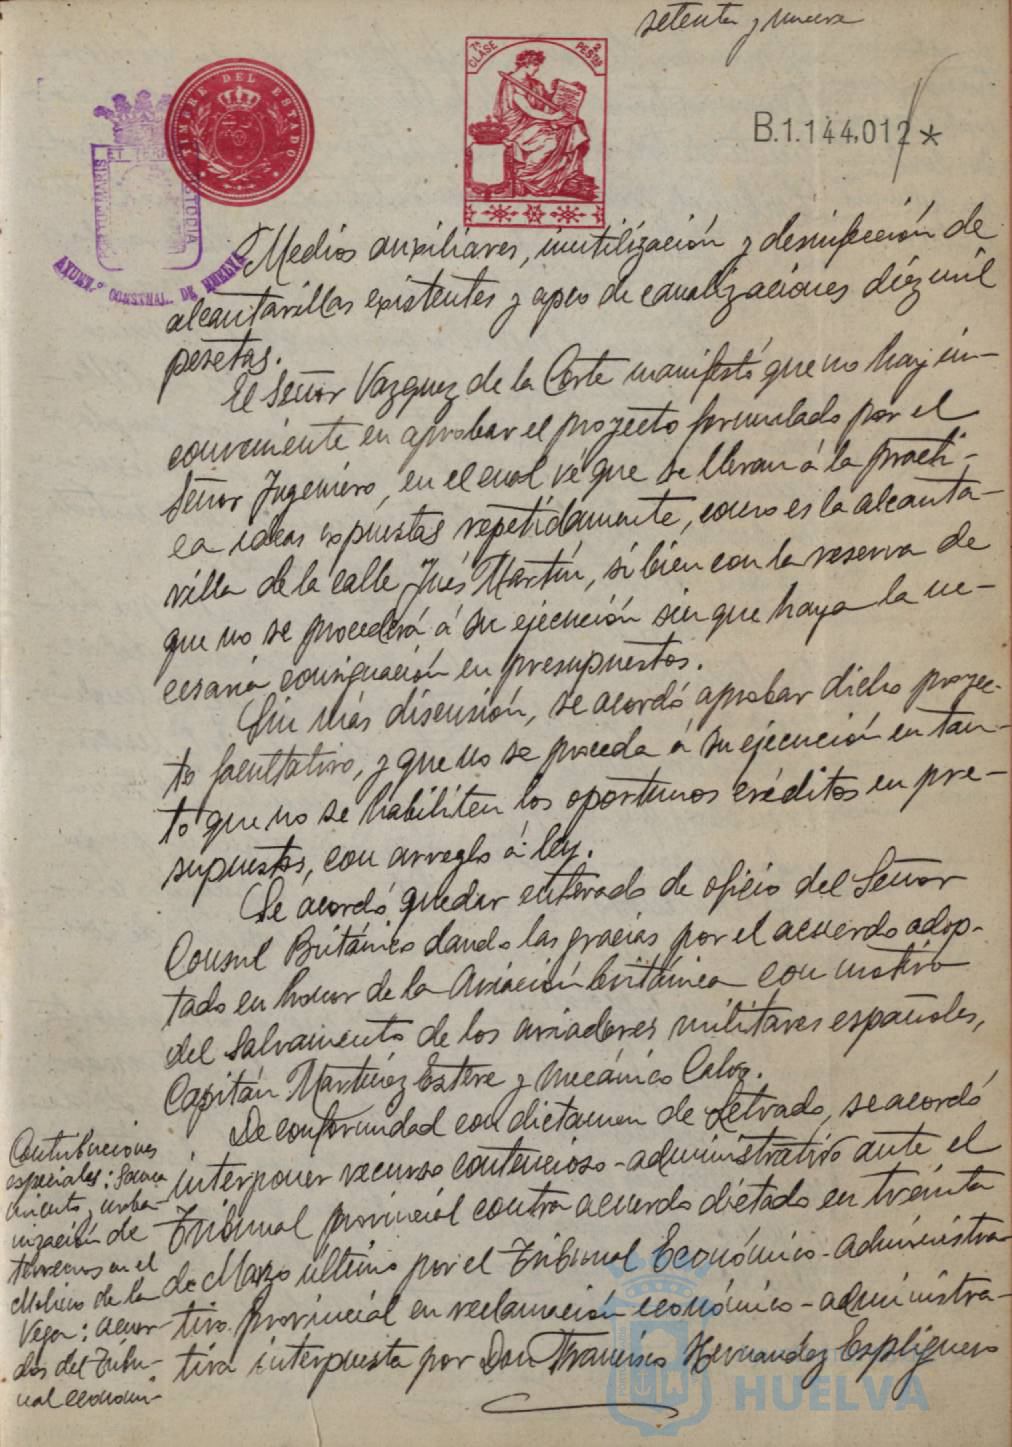 setenta y nueve
7ª CLASE
2 PESETAS
TIMBRE DEL ESTADO
B.1.144,012*
AYUNT.º CONSTNAL. DE HUELVA
Medios auxiliares, inutilización y desinfección de
alcantarillas existentes y apeo de canalizaciones diez mil
pesetas.
El Señor Vazquez de la Corte manifestó que no hay in-
conveniente en aprobar el proyecto formulado por el
Señor Ingeniero, en el cual vé que se llevan á la practi-
ca ideas expuestas repetidamente, como es la alcanta-
rilla de la calle Inés Martín, si bien con la reserva de
que no se procederá á su ejecución sin que haya la ne-
cesaria consignación en presupuestos.
Sin más discusión, se acordó aprobar dicho proyec-
to facultativo, y que no se proceda á su ejecución en tan-
to que no se habiliten los oportunos créditos en pre-
supuestos, con arreglo á ley.
Se acordó quedar enterado de oficio del Señor
Consul Británico dando las gracias por el acuerdo adop-
tado en honor de la Aviación británica con motivo
del salvamento de los aviadores militares españoles,
Capitán Martinez Esteve y mecánico Calvo.
De conformidad con dictamen de Letrado, se acordó
interponer recurso contencioso-administrativo ante el
Tribunal provincial contra acuerdo dictado en treinta
de Marzo último por el Tribunal Económico-administra-
tivo provincial en reclamación económico-administra-
tiva interpuesta por Don Francisco Hernandez Espliguero
Contribuciones
especiales: Sanea
miento y urba-
nización de
terrenos en el
Molino de la
Vega: acuer-
dos del Tribu-
nal economi-
HUELVA